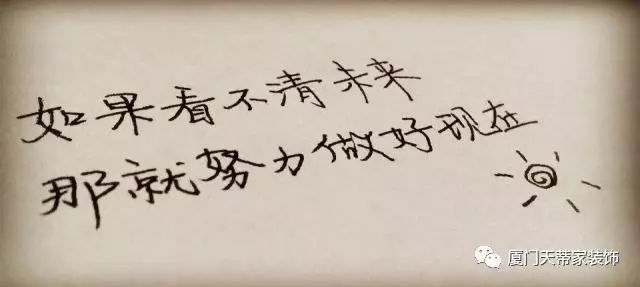 如果看不清未来
那就努力做好现在
厦门天蒂家装饰